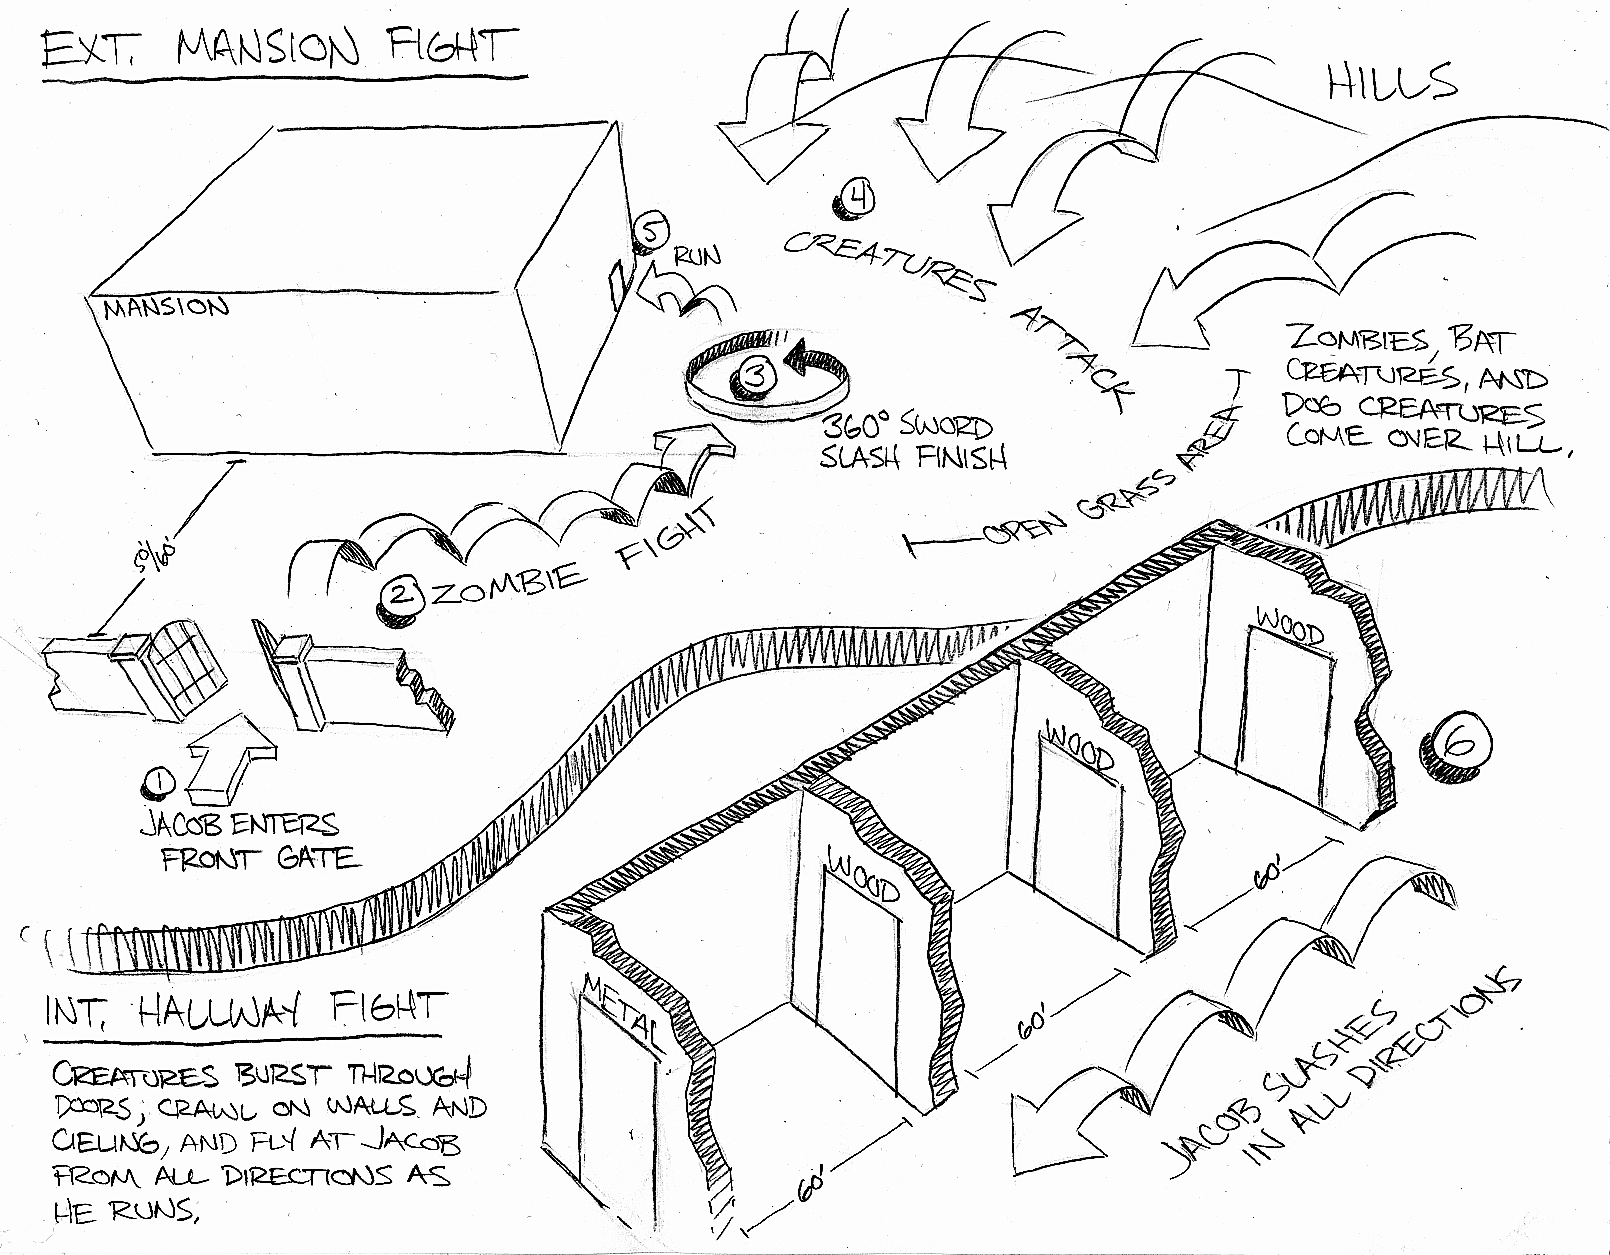 EXT. MANSION FIGHT
HILLS
4
CREATURES ATTACK
5
RUN
MANSION
3
360° SWORD
SLASH FINISH
ZOMBIES, BAT
CREATURES, AND
DOG CREATURES
COME OVER HILL.
OPEN GRASS AREA
50'/60'
2 ZOMBIE FIGHT
1
JACOB ENTERS
FRONT GATE
WOOD
WOOD
WOOD
METAL
6
60'
60'
60'
JACOB SLASHES
IN ALL DIRECTIONS
INT. HALLWAY FIGHT
CREATURES BURST THROUGH
DOORS, CRAWL ON WALLS AND
CIELING, AND FLY AT JACOB
FROM ALL DIRECTIONS AS
HE RUNS.